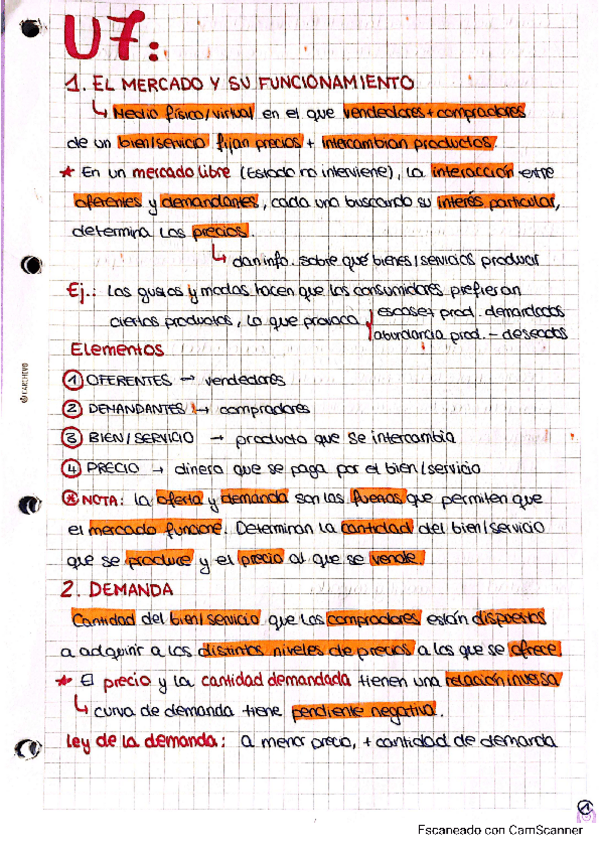 U7:
1. EL MERCADO Y SU FUNCIONAMIENTO
↳ Medio físico/virtual en el que vendedores + compradores
de un bien/servicio fijan precios + intercambian productos.
* En un mercado libre (Estado no interviene), la interacción entre
oferentes y demandantes, cada uno buscando su interés particular,
determina los precios.
↳ dan info. sobre qué bienes/servicios producir
Ej.: Los gustos y modas hacen que los consumidores prefieran
ciertos productos, lo que provoca escasez prod. demandados
abundancia prod. - deseados
Elementos
1 OFERENTES → vendedores
2 DEMANDANTES → compradores
3 BIEN/SERVICIO → producto que se intercambia
4 PRECIO → dinero que se paga por el bien/servicio
* NOTA: la oferta y demanda son las fuerzas que permiten que
el mercado funcione. Determinan la cantidad del bien/servicio
que se produce y el precio al que se vende.
2. DEMANDA
Cantidad del bien/servicio que los compradores están dispuestos
a adquirir a los distintos niveles de precios a los que se ofrece.
* El precio y la cantidad demandada tienen una relación inversa
↳ curva de demanda tiene pendiente negativa.
Ley de la demanda: a menor precio, + cantidad de demanda
1
Escaneado con CamScanner